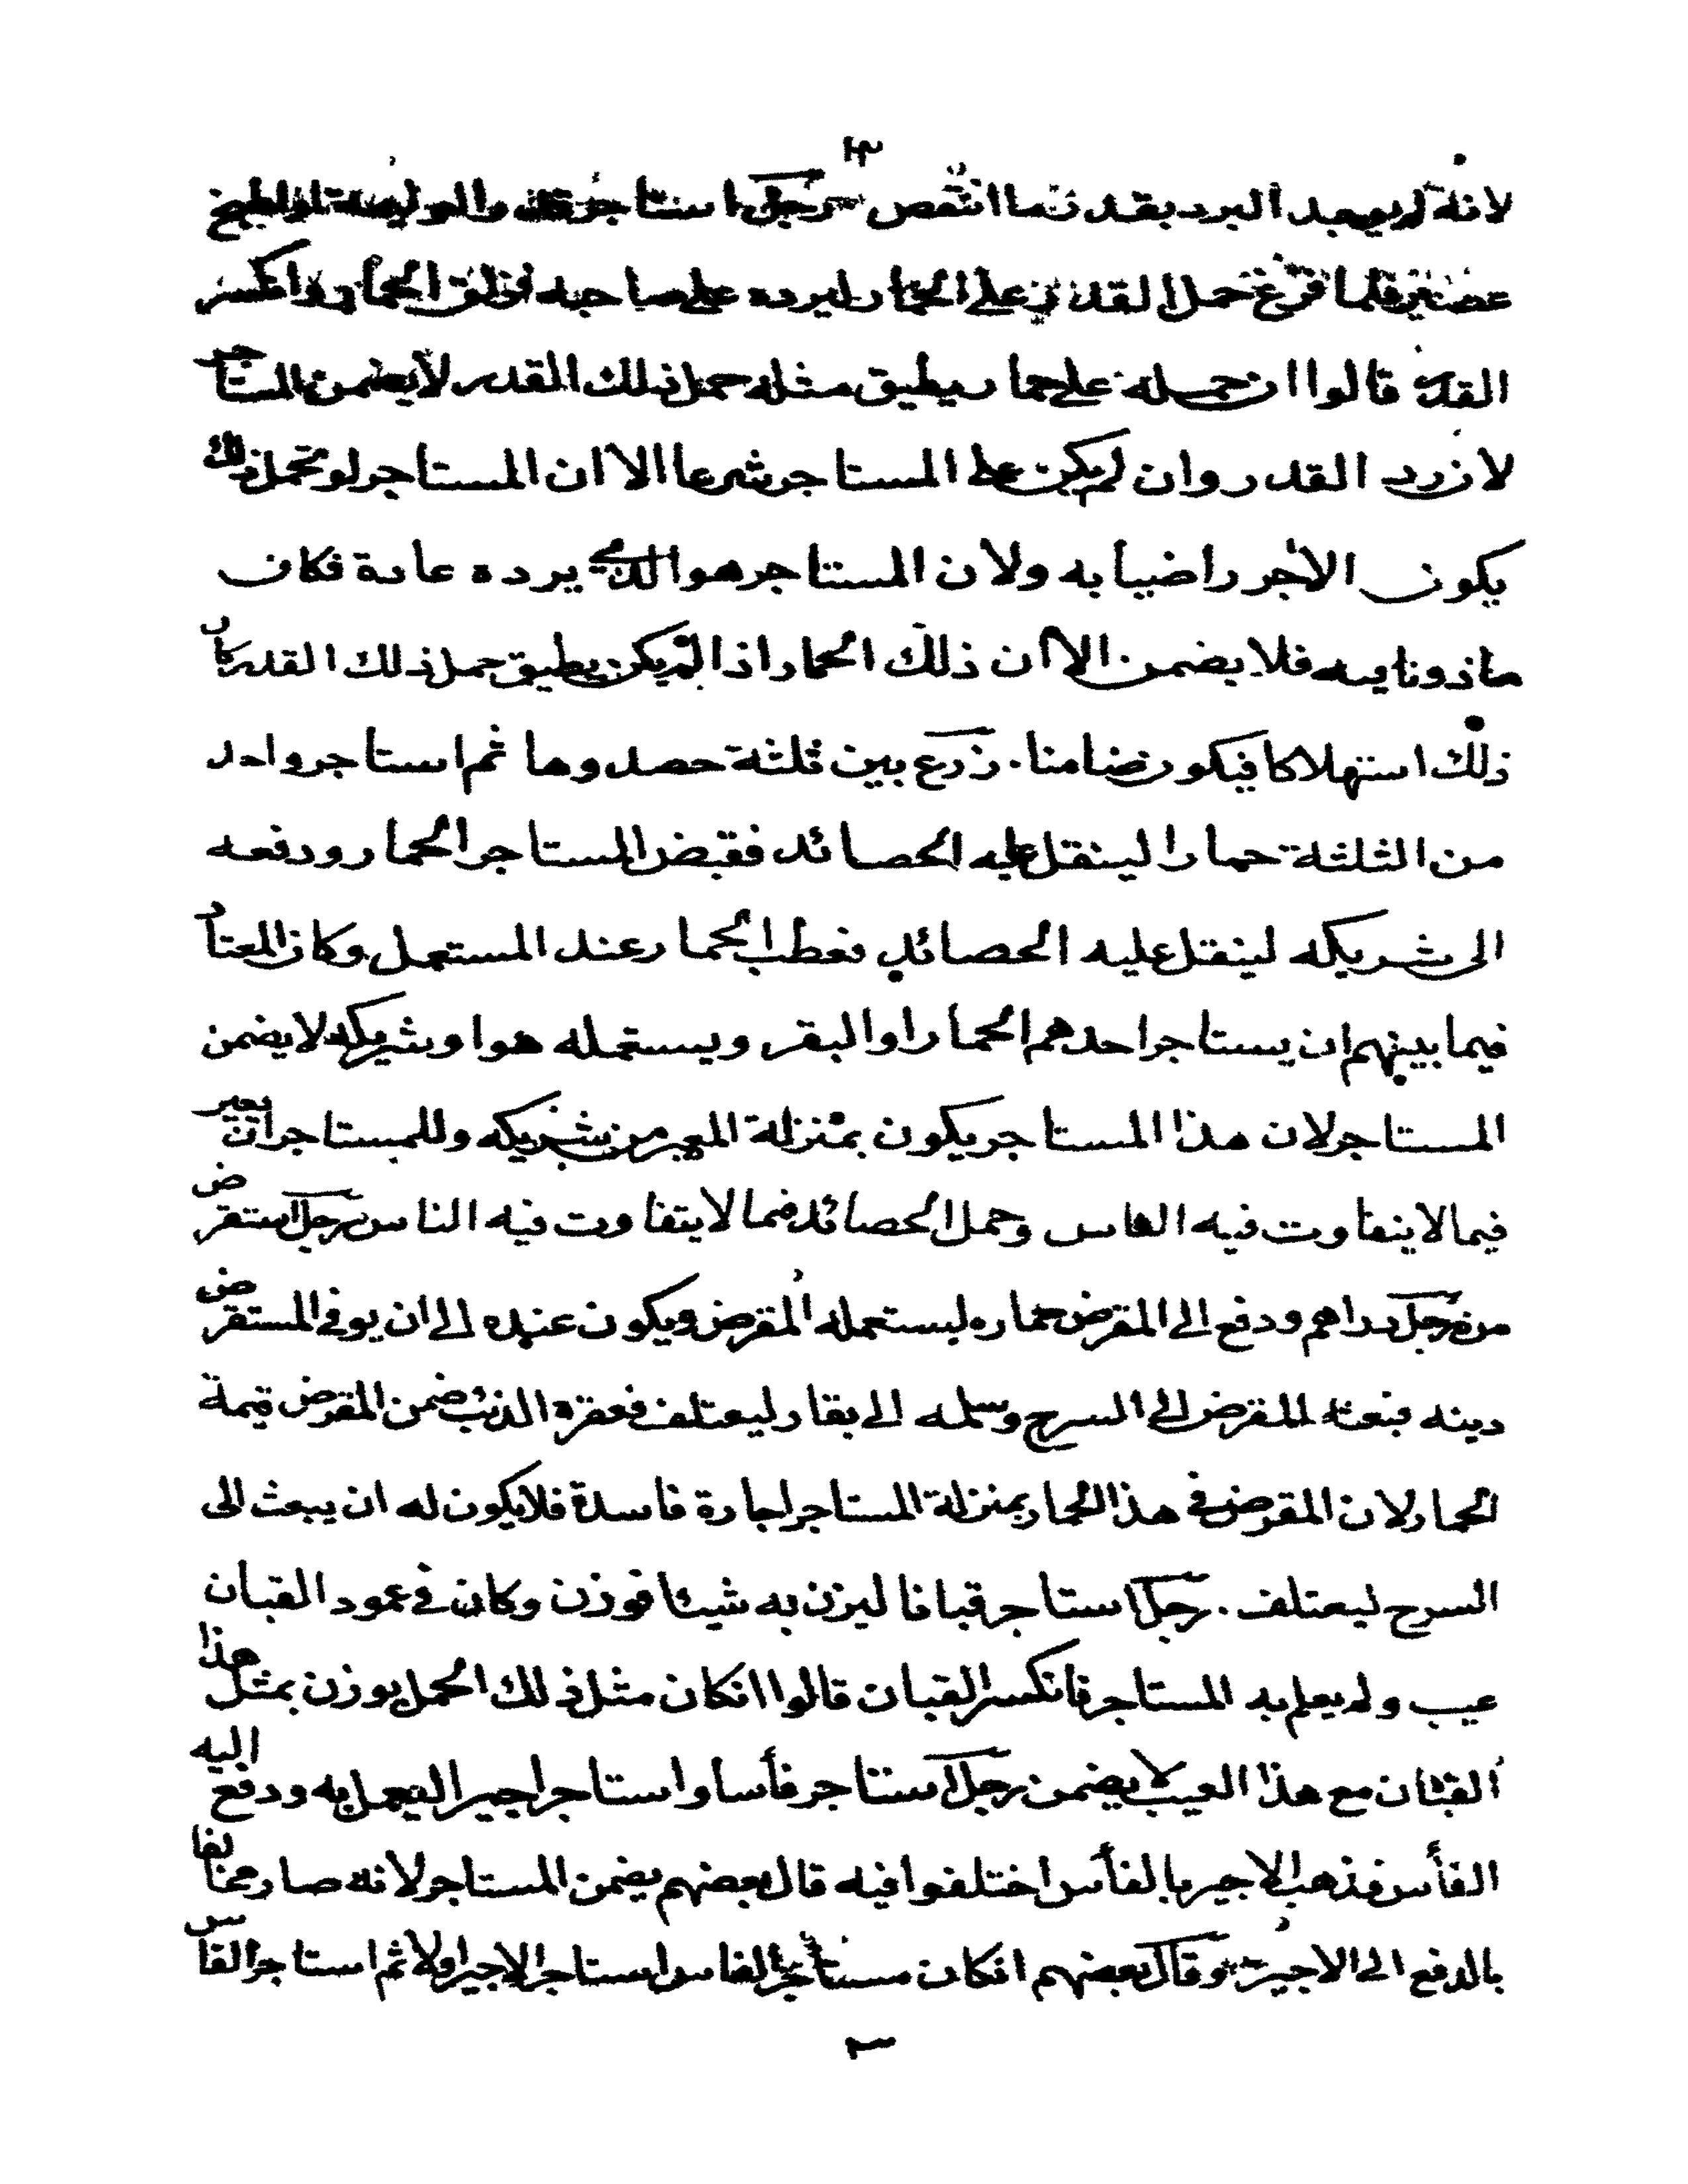 ٣
لانه لم يوجد البرد بقدر ما انتقص رجل استاجر
فلما فرغ حمل القدر على الحمار ليرده على صاحبه فزلق الحمار وانكسر
القدر قالوا ان حمله على حمار يطيق مثله حمل ذلك القدر لا يضمن المستاجر
لان رد القدر وان لم يكن على المستاجر شرعا الا ان المستاجر لو تحمل ذلك
يكون الاجر راضيا به ولان المستاجر هو الذي يرده عادة فكان
ماذونا فيه فلا يضمن الا ان ذلك الحمار اذا لم يكن يطيق حمل ذلك القدر كان
ذلك استهلاكا فيكون ضامنا . زرع بين ثلثة حصدوها ثم استاجر واحد
من الثلثة حمارا لينقل عليه الحصائد فقبض المستاجر الحمار ودفعه
الى شريكه لينقل عليه الحصائد فعطب الحمار عند المستعمل وكان المعتاد
فيما بينهم ان يستاجر احدهم الحمار او البقر ويستعمله هو او شريكه لا يضمن
المستاجر لان هذا المستاجر يكون بمنزلة المعير من شريكه وللمستاجر ان يعير
فيما لا يتفاوت فيه الناس وحمل الحصائد مما لا يتفاوت فيه الناس رجل استقرض
من رجل دراهم ودفع الى المقرض حماره ليستعمله المقرض ويكون عنده الى ان يوفى المستقرض
دينه فبعثه المقرض الى السرح وسلمه الى بقار ليعتلف فعقره الذئب ضمن المقرض قيمة
الحمار لان المقرض في هذا الحمار بمنزلة المستاجر اجارة فاسدة فلا يكون له ان يبعث الى
السرح ليعتلف . رجل استاجر قبانا ليزن به شيئا فوزن وكان في عمود القبان
عيب ولم يعلم به المستاجر فانكسر القبان قالوا انكان مثل ذلك الحمل يوزن بمثل هذا
القبان مع هذا العيب لا يضمن رجل استاجر فأسا واستاجر اجيرا ليعمل به ودفع اليه
الفأس فذهب الاجير بالفأس اختلفوا فيه قال بعضهم يضمن المستاجر لانه صار مخالفا
بالدفع الى الاجير وقال بعضهم انكان مستأجر الفاس استاجر الاجير اولا ثم استاجر الفاس